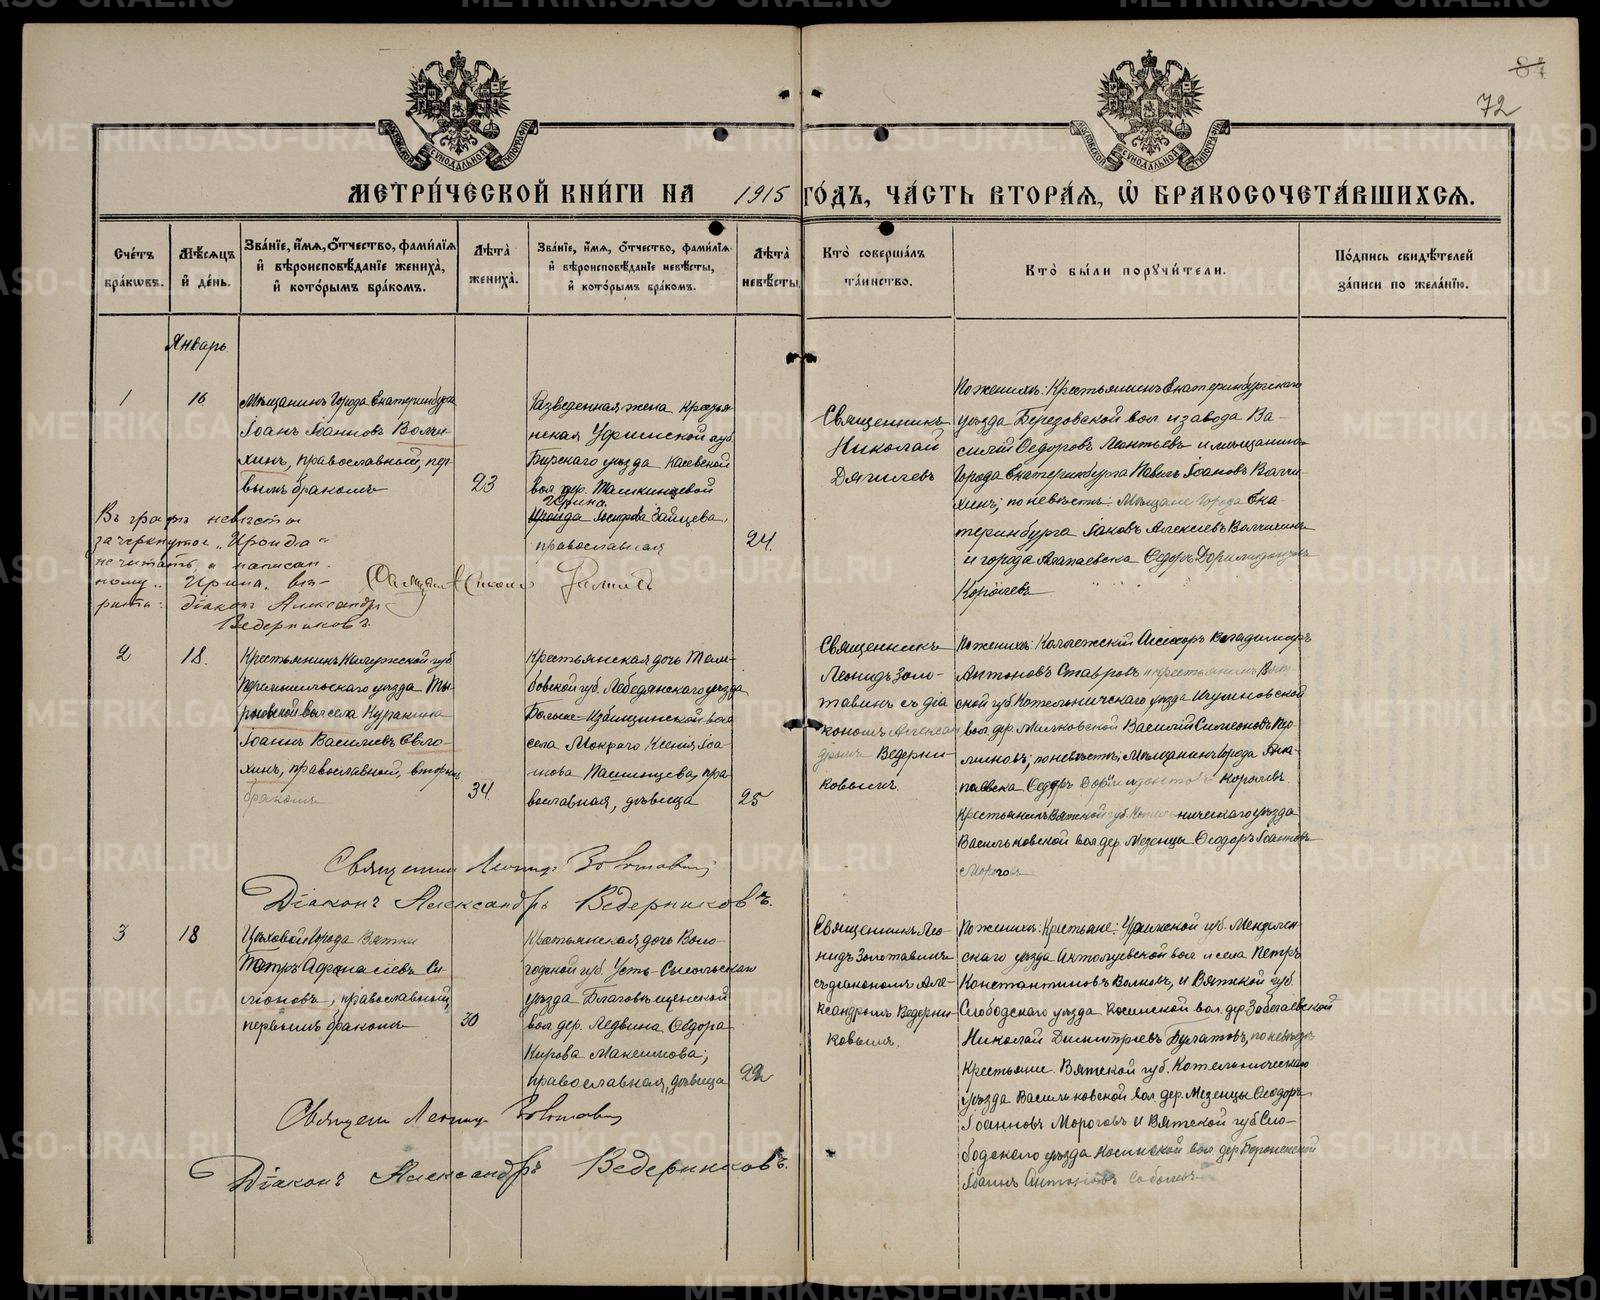 84
72
МОСКОВСКОЙ СѴНОДАЛЬНОЙ ТИПОГРАФІИ
МОСКОВСКОЙ СѴНОДАЛЬНОЙ ТИПОГРАФІИ
МЕТРИ́ЧЕСКОЙ КНИ́ГИ НА 1915 ГО́ДЪ, ЧА́СТЬ ВТОРА́Я, Ѡ҆ БРАКОСОЧЕТА́ВШИХСЯ.
Сче́тъ бра́кѡвъ.
Мѣ́сяцъ и҆ де́нь.
Зва́нїе, и҆́мя, ѻ҆́тчество, фами́лїя и҆ вѣроисповѣ́данїе жениха̀, и҆ кото́рымъ бра́комъ.
Лѣ́та жениха̀.
Зва́нїе, и҆́мя, ѻ҆́тчество, фами́лїя и҆ вѣроисповѣ́данїе невѣ́сты, и҆ кото́рымъ бра́комъ.
Лѣ́та невѣ́сты
Кто̀ соверша́лъ та́инство.
Кто̀ бы́ли порꙋчи́тели.
По́дпись свидѣ́телей за́писи по жела́нїю.
Январь
1
16.
Мѣщанинъ города Екатеринбурга
Іоаннъ Іоанновъ Волчи-
хинъ, православный, пер-
вымъ бракомъ
23
Разведенная жена крестья-
нская Уфимской губ.
Бирскаго уѣзда Касевской
вол. дер. Ташкиновой
Ирина
Ираида Зайцева,
православная
24.
Священникъ
Николай
Дягилевъ
По женихѣ: Крестьянинъ Екатеринбургскаго
уѣзда Березовской вол. и завода Ва-
силій Ѳедоровъ Леонтьевъ и мѣщанинъ
города Екатеринбурга Павелъ Іоановъ Волчи-
хинъ; по невѣстѣ: Мѣщане города Ека-
теринбурга Іаковъ Алексіевъ Волчихинъ
и города Алапаевска Ѳедоръ Доримедонтовъ
Королевъ
Въ графѣ невѣсты
зачеркнутое „Ираида“
не читать, а написан-
ному „Ирина“ вѣ-
рить: діаконъ Александръ
Ведерниковъ.
2
18.
Крестьянинъ Калужской губ.
Перемышльскаго уѣзда
вол. села Куракина
Іоаннъ Василіевъ Евло-
хинъ, православной, вторым
бракомъ
34.
Крестьянская дочь Там-
бовской губ. Лебедянскаго уѣзда
Больше-Избищинской вол.
села Мокраго Ксенія Іоа-
нова Пашинцева, пра-
вославная, дѣвица
25
Священникъ
Леонидъ Золо-
тавинъ съ діа
кономъ Алексан
дромъ Ведерни-
ковымъ.
По женихѣ: Коллежскій Асесоръ Владиміръ
Антоновъ Ставровъ и крестьянинъ Вят-
ской губ. Котельничскаго уѣзда
вол. дер. Василій Симеоновъ
по невѣстѣ; Мѣщанинъ города Ала-
паевска Ѳедоръ Доримедонтовъ Королевъ
Крестьянинъ Вятской губ. Котельническаго уѣзда
Васильковской вол. дер. Мезенцы Ѳеодоръ Іоанновъ
Мороговъ
Священник Леонид Золотавин
Діаконъ Александръ Ведерниковъ.
3
18
Цѣховой города Вятки
Петръ Афанасіевъ Си-
меоновъ, православный,
первымъ бракомъ
30
Крестьянская дочь Воло-
годской губ. Усть-Сысольскаго
уѣзда Благовѣщенской
вол. дер. Ледвина Ѳедора
Кирова Максимова,
православная, дѣвица
22
Священникъ Лео-
нидъ Золотавинъ
съ діакономъ Але-
ксандромъ Ведерни-
ковымъ.
По женихѣ: Крестьяне: Уфимской губ. Мензелин-
скаго уѣзда вол. и села Петръ
Константиновъ Волковъ, и Вятской губ.
Слободскаго уѣзда Косинской вол. дер.
Николай Димитріевъ Булатовъ, по невѣстѣ
Крестьяне Вятской губ. Котельническаго
уѣзда Васильковской вол. дер. Мезенцы Ѳеодоръ
Іоанновъ Мороговъ и Вятской губ. Сло-
бодскаго уѣзда Косинской вол. дер.
Іоаннъ Антоновъ
Священ Леонид Золотавин
Діаконъ Александръ Ведерниковъ.
METRIKI.GASO-URAL.RU